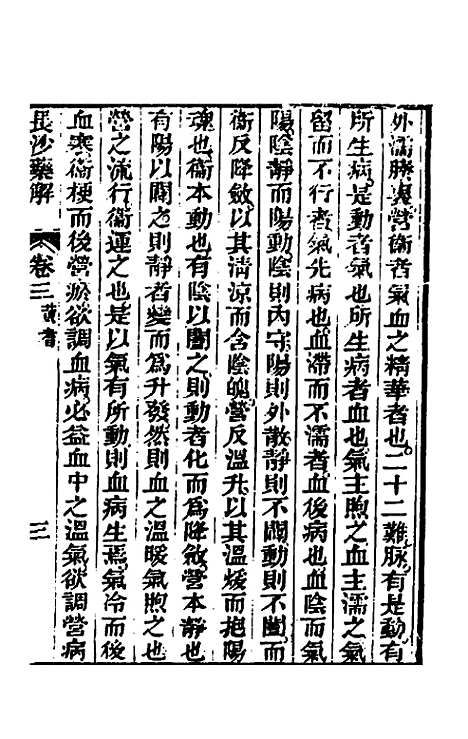 外濡腠理營衞者氣血之精華者也二十二難脉有是動有
所生病是動者氣也所生病者血也氣主煦之血主濡之氣
留而不行者氣先病也血滯而不濡者血後病也血陰而氣
陽陰靜而陽動陰則內守陽則外散靜則不闢動則不闔而
衞反降斂以其淸涼而含陰魄營反溫升以其溫煖而抱陽
魂也衞本動也有陰以闔之則動者化而爲降斂營本靜也
有陽以闢之則靜者變而爲升發然則血之溫暖氣煦之也
營之流行衞運之也是以氣有所動則血病生焉氣冷而後
血寒衞梗而後營瘀欲調血病必益血中之溫氣欲調營病
長沙藥解 卷三 黃耆 三